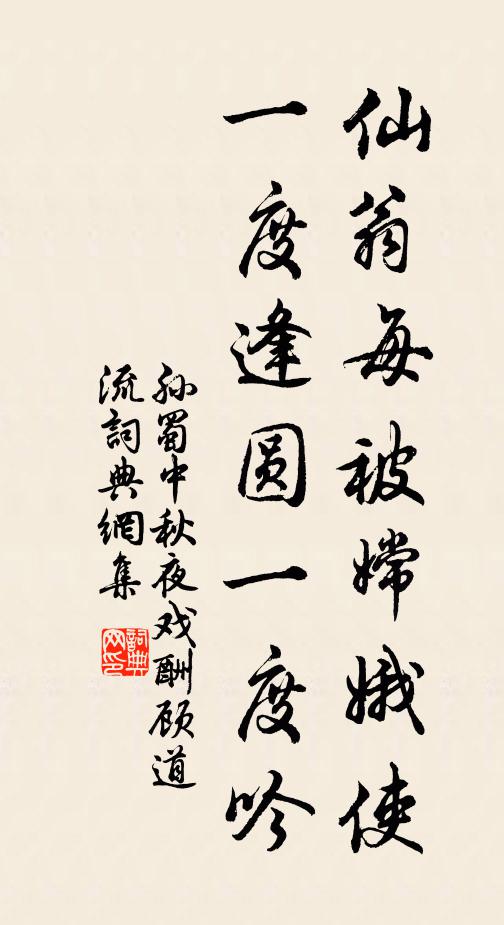 仙翁每被嫦娥使
一度逢圆一度吟
孙蜀中秋夜戏酬顾道
流词典网集
詞典网印